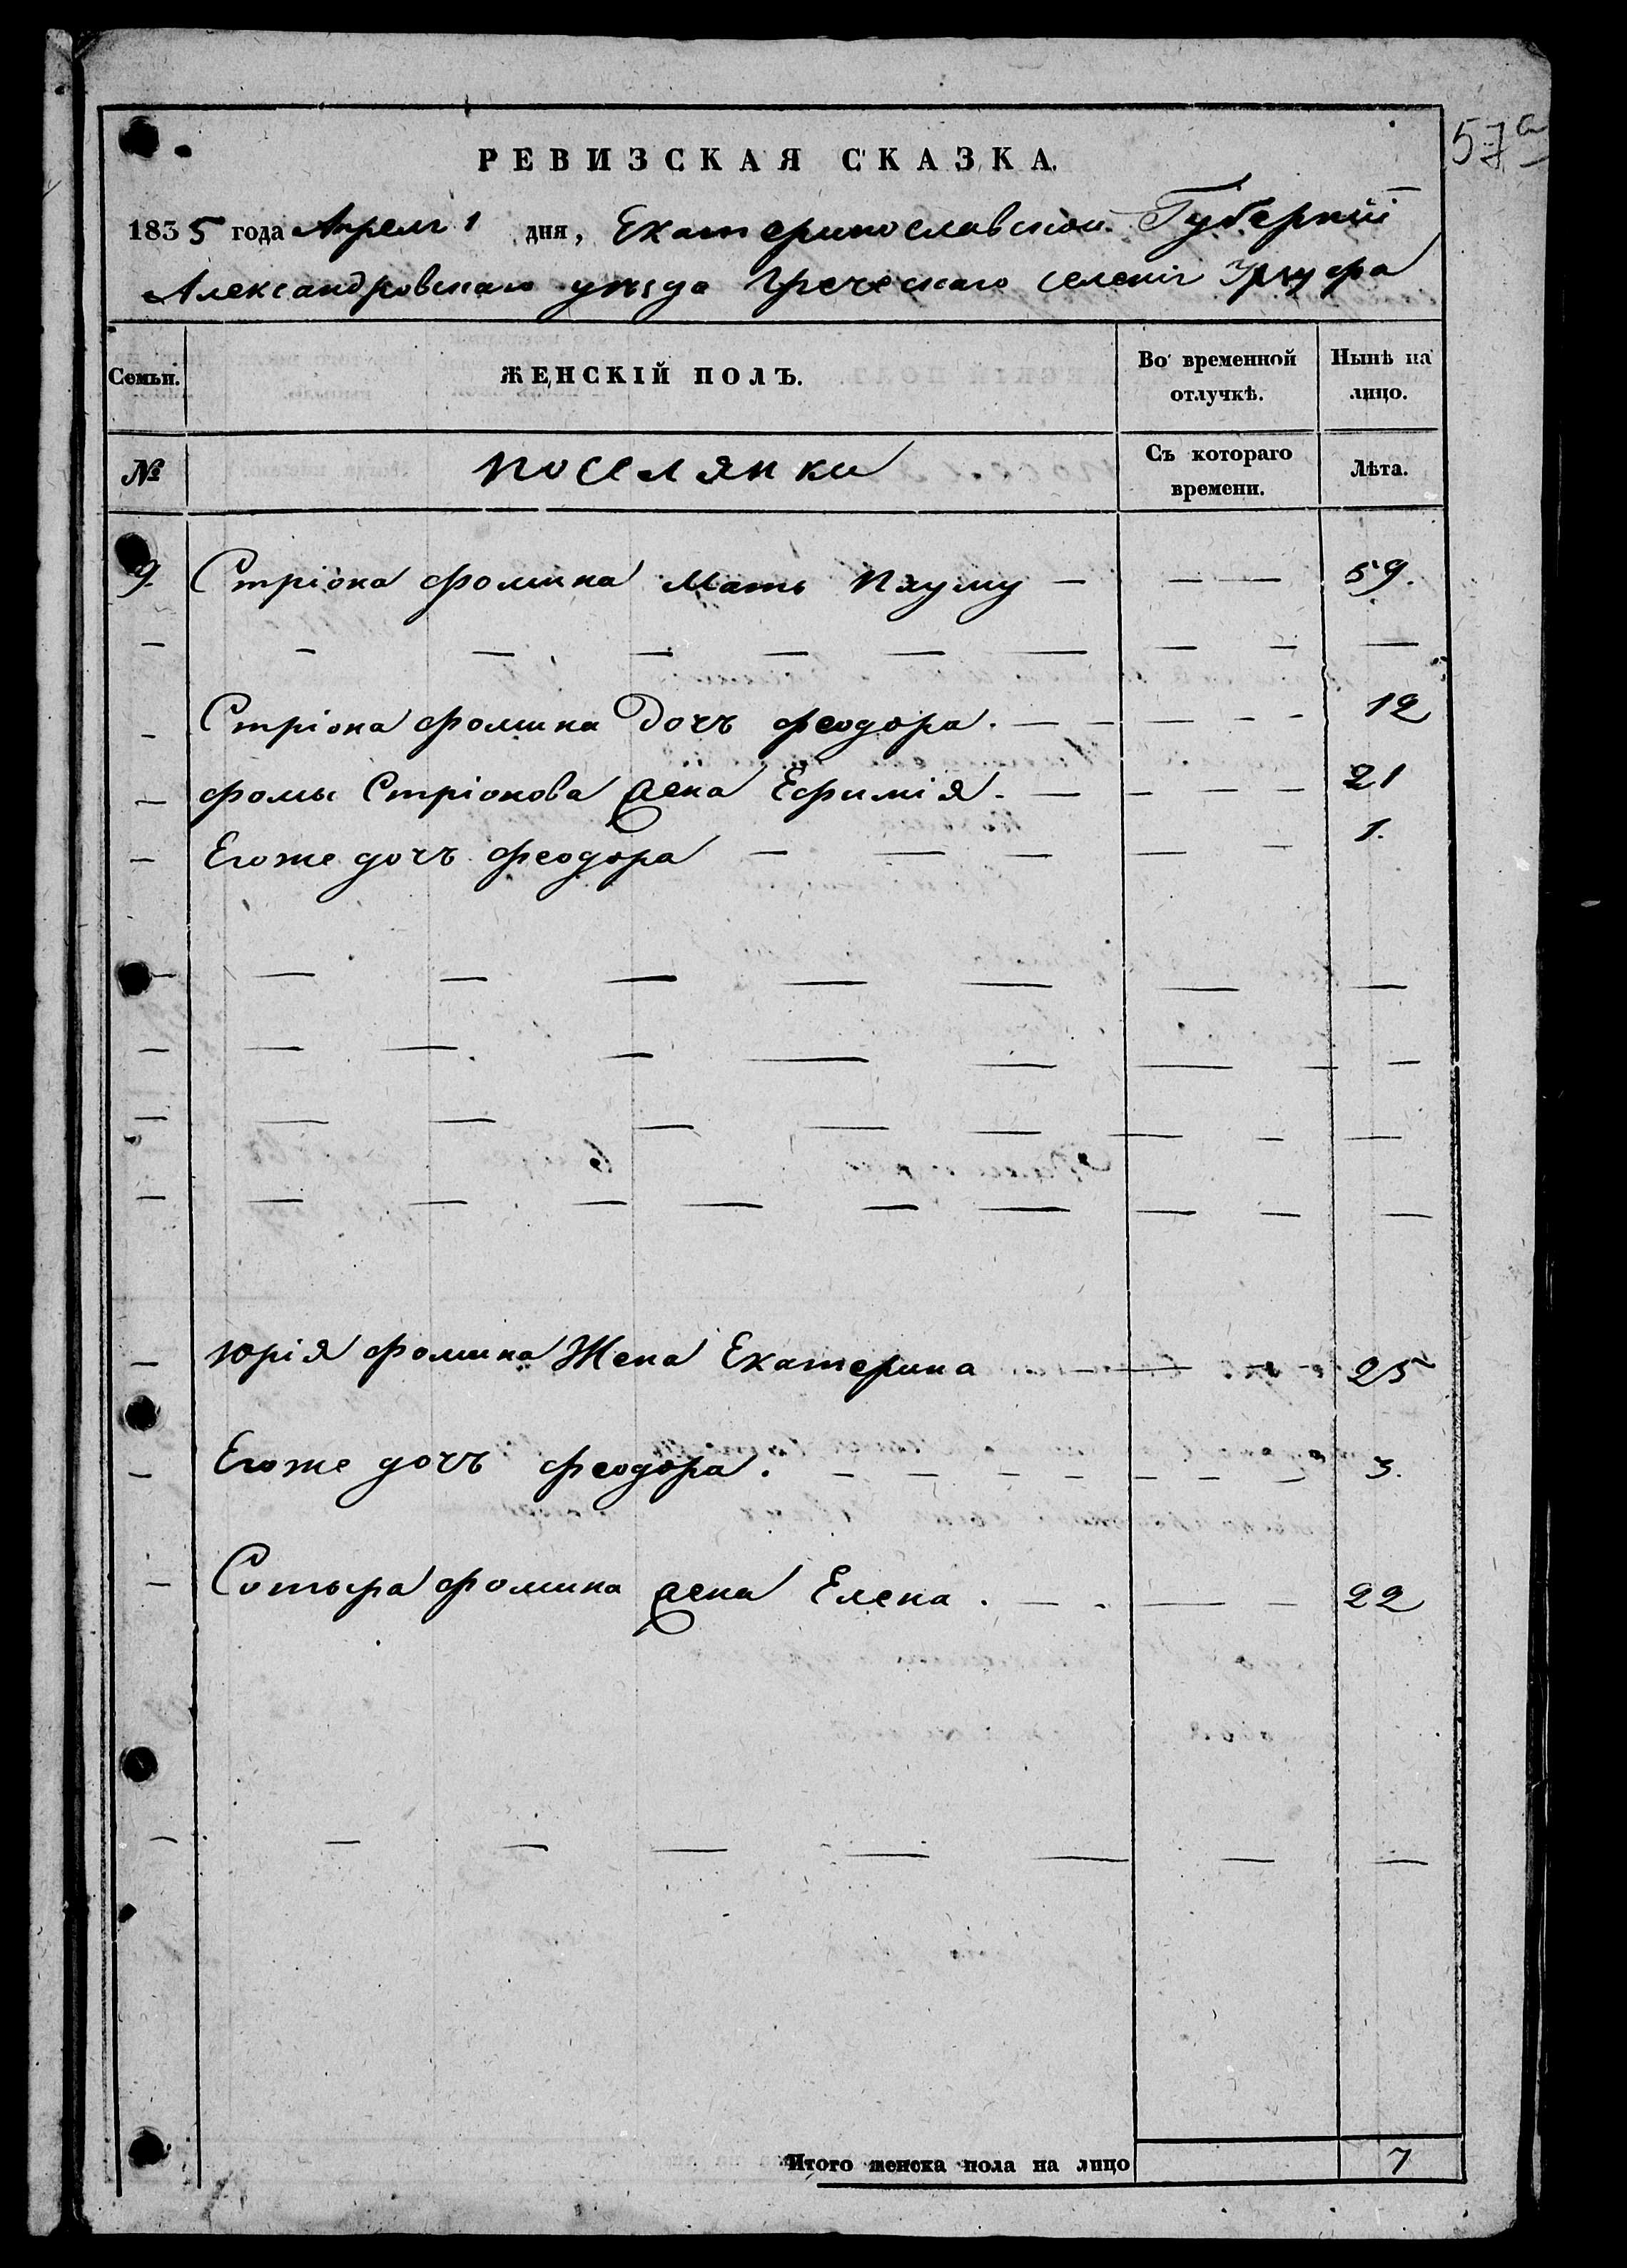 57а
РЕВИЗСКАЯ СКАЗКА.
1835 года Апреля 1 дня, Екатеринославской Губерніи
Александровскаго уѣзда Греческаго селенія Урзуфа
Семьи. ЖЕНСКІЙ ПОЛЪ. Во временной отлучкѣ. Нынѣ на лицо.
№ поселянки Съ котораго времени. Лѣта.
9. Стріона Фомина Мать — — — 59.
— — — — — — — — — —
— Стріона Фомина Дочъ Феодора. — — — — — 12
— Фомы Стріонова жена Ефимія. — — — — 21
— Егоже дочъ Феодора — — — — — 1.
— — — — — — — —
— — — — — — — — —
— — — — — — — — —
— — — — — — — — — —
— Юрія Фомина Жена Екатерина — — 25
— Егоже дочъ Феодора. — — — — — — — — 3.
— Сотыра Фомина жена Елена. — — — — 22
— — — — — — — —
Итого женска пола на лицо 7